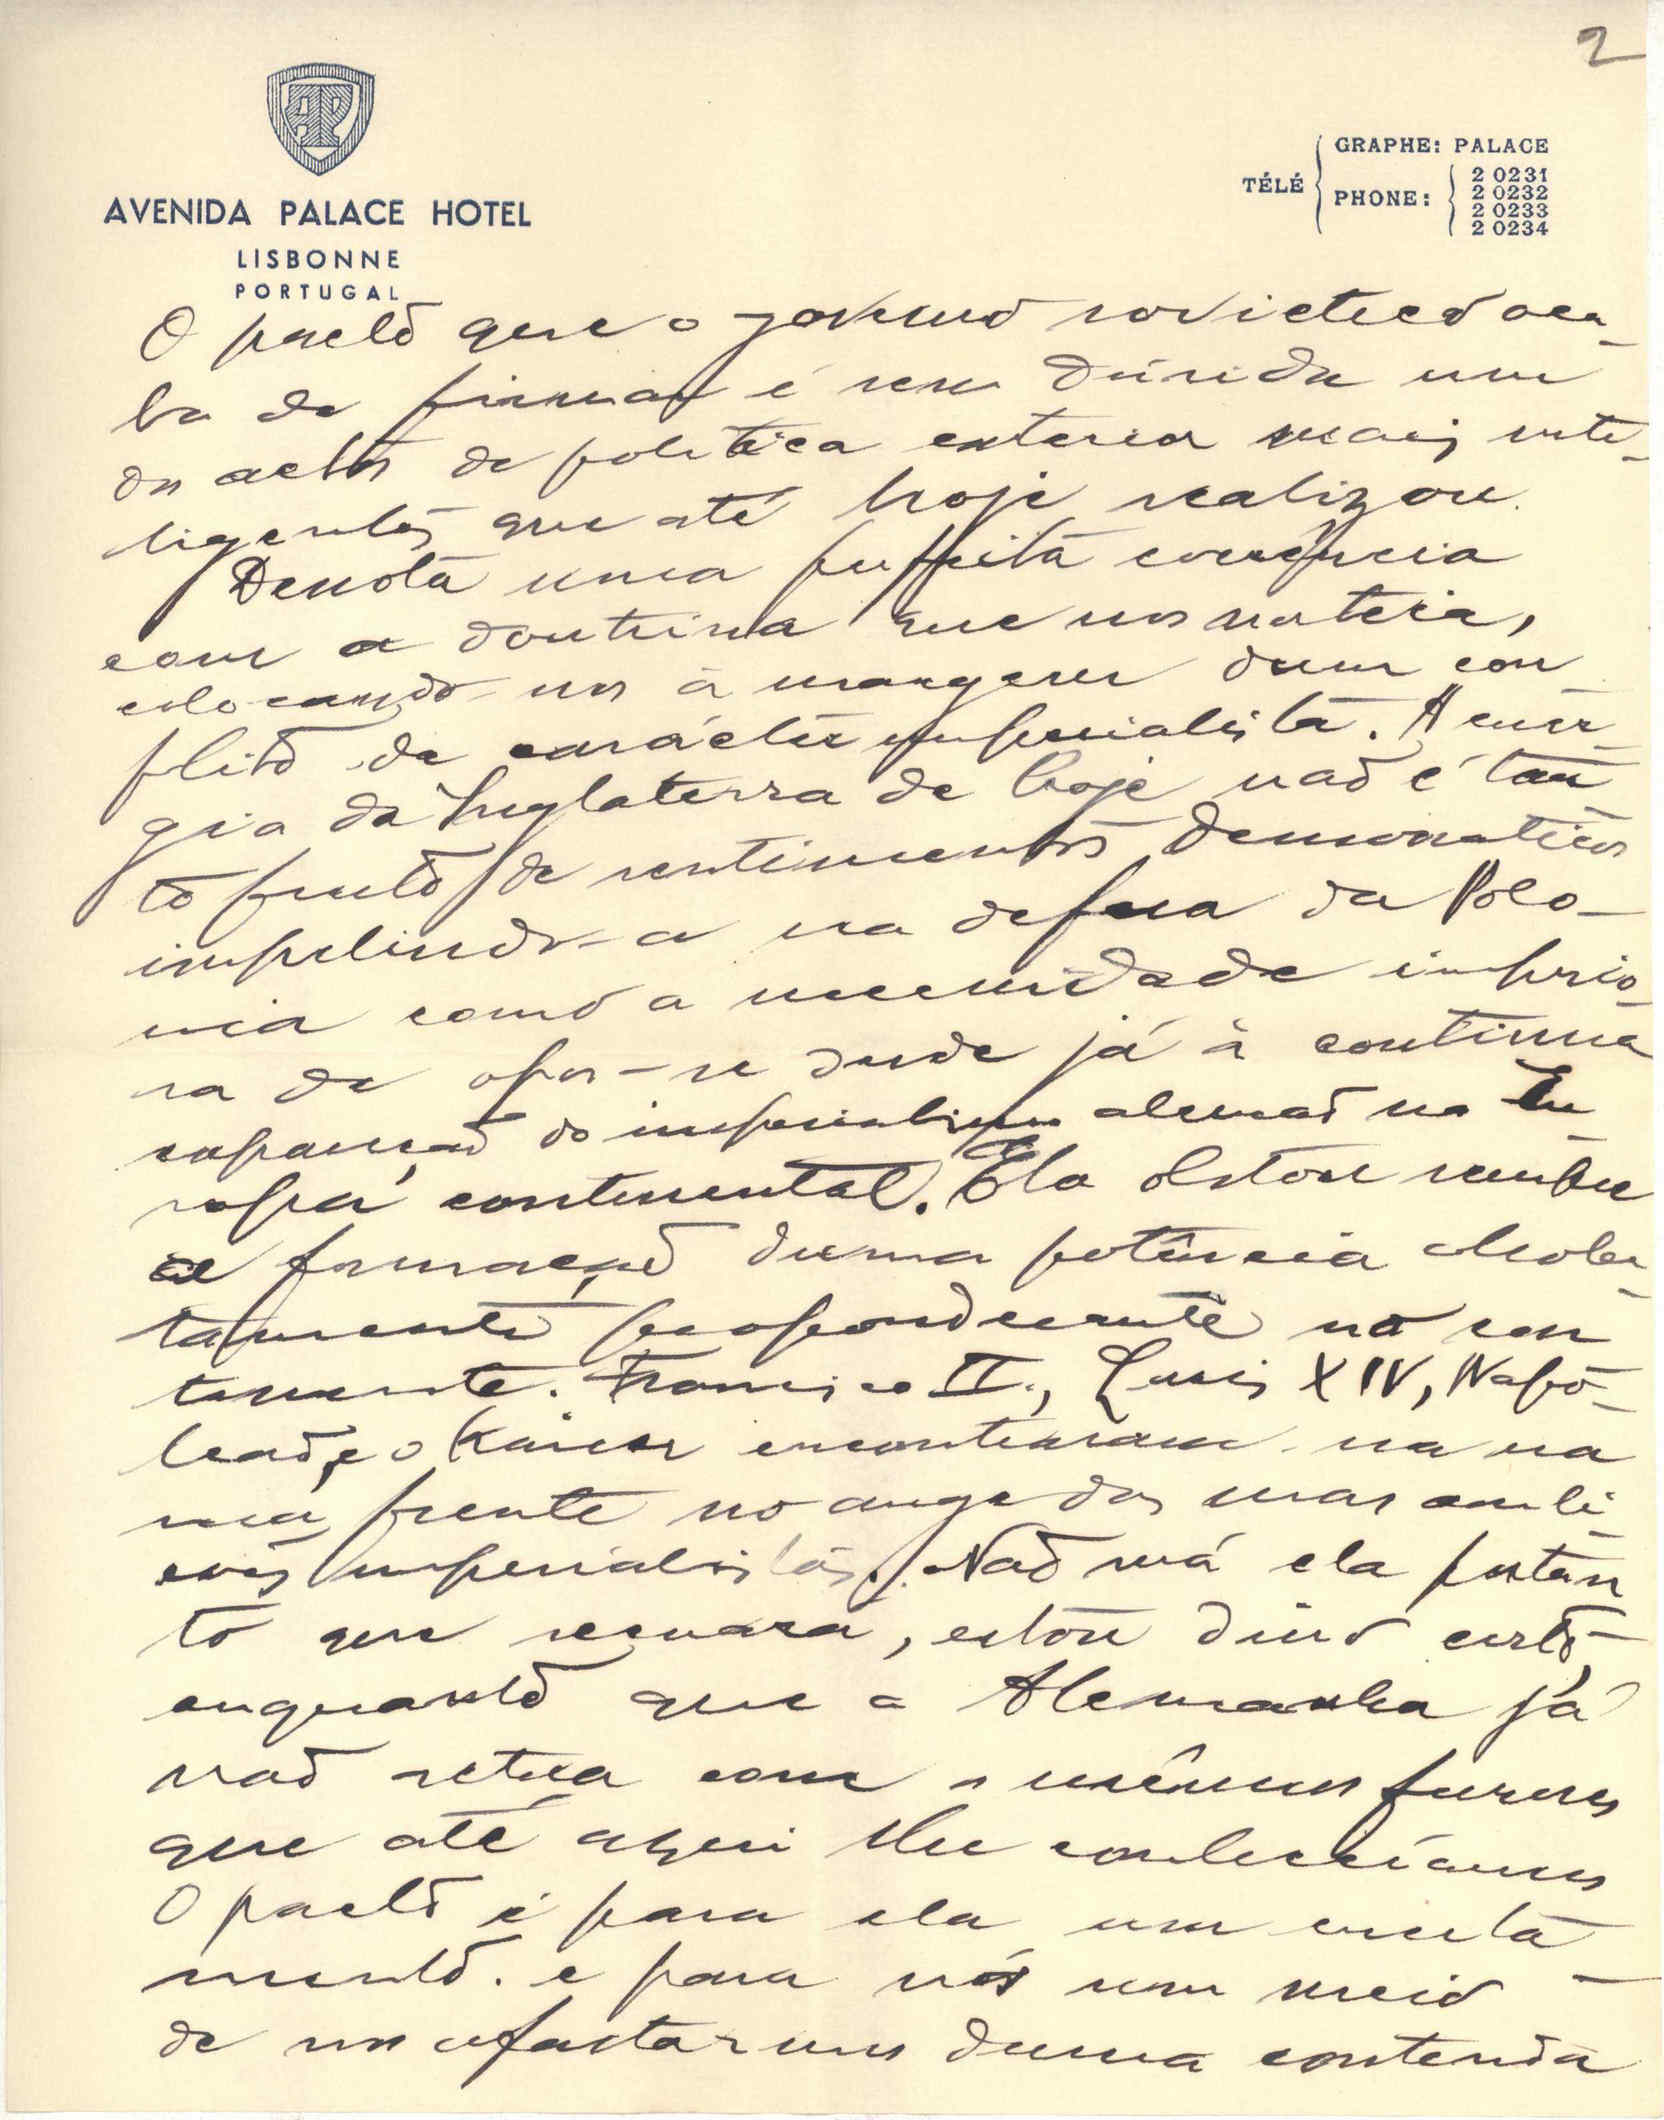 2
AP
AVENIDA PALACE HOTEL
LISBONNE
PORTUGAL
TÉLÉ
GRAPHE: PALACE
PHONE:
2 0231
2 0232
2 0233
2 0234
O pacto que o governo sovietico aca-
ba de firmar é sem dúvida um
dos actos de politica exterior mais inte-
ligentes que até hoje realizou.
Denota uma perfeita coerência
com a doutrina que nos norteia,
colocando-nos à margem dum con
flito de carácter imperialista. A ener-
gia da Inglaterra de hoje não é tan
to fruto de sentimentos democraticos
impelindo-a na defesa da Polo-
nia como a necessidade imperio-
sa de opor-se desde já à continua
expansão do imperialismo alemão na Eu-
ropa continental. Ela obstou sempre
a formação duma potência absolu-
tamente preponderante no con
tinente. Francisco II., Luis XIV, Napo-
leão, e o Kaiser encontraram-na na
sua frente no auge das suas ambi-
ções imperialistas. Não será ela portan
to que recuará, estou disso certo,
enquanto que a Alemanha já
não actua com os mêsmos furores
que até aqui lhe conheciamos
O pacto é para ela um encita-
mento. e para nós um meio
de nos afastarmos duma contenda